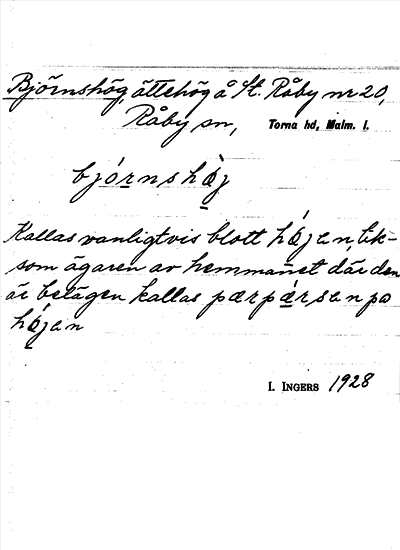 Björnshög, ättehög å St. Råby nr 20,
Råby sn, Torna hd, Malm. l.
bjórnshǿj
Kallas vanligtvis blott hǿjan, lik-
som ägaren av hemmanet där den
är belägen kallas pærpǽrsan po
hǿjan
I. INGERS 1928